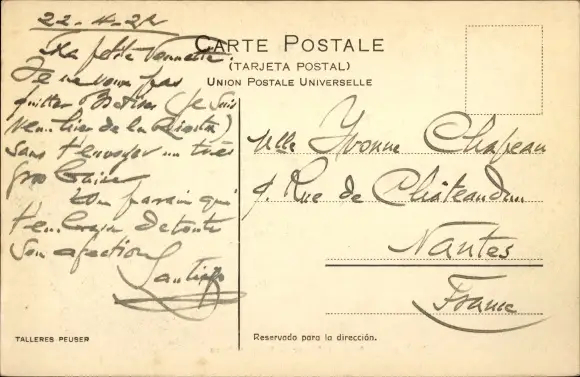 22-4-22
CARTE POSTALE
(TARJETA POSTAL)
UNION POSTALE UNIVERSELLE
Ma petite Vonnette.
Je ne veux pas
quitter (Je suis
de la
sans t'envoyer un très
gros baiser
Ton parrain qui
t'embrasse de toute
son afection
Santiago
Mlle Yvonne Chapeau
Rue de Châteaudun
Nantes
France
TALLERES PEUSER
Reservado para la dirección.